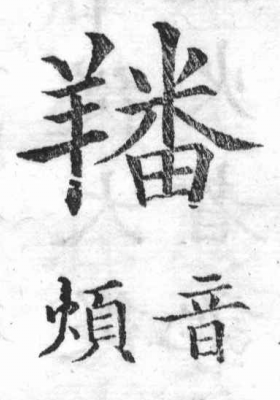 羳
音煩